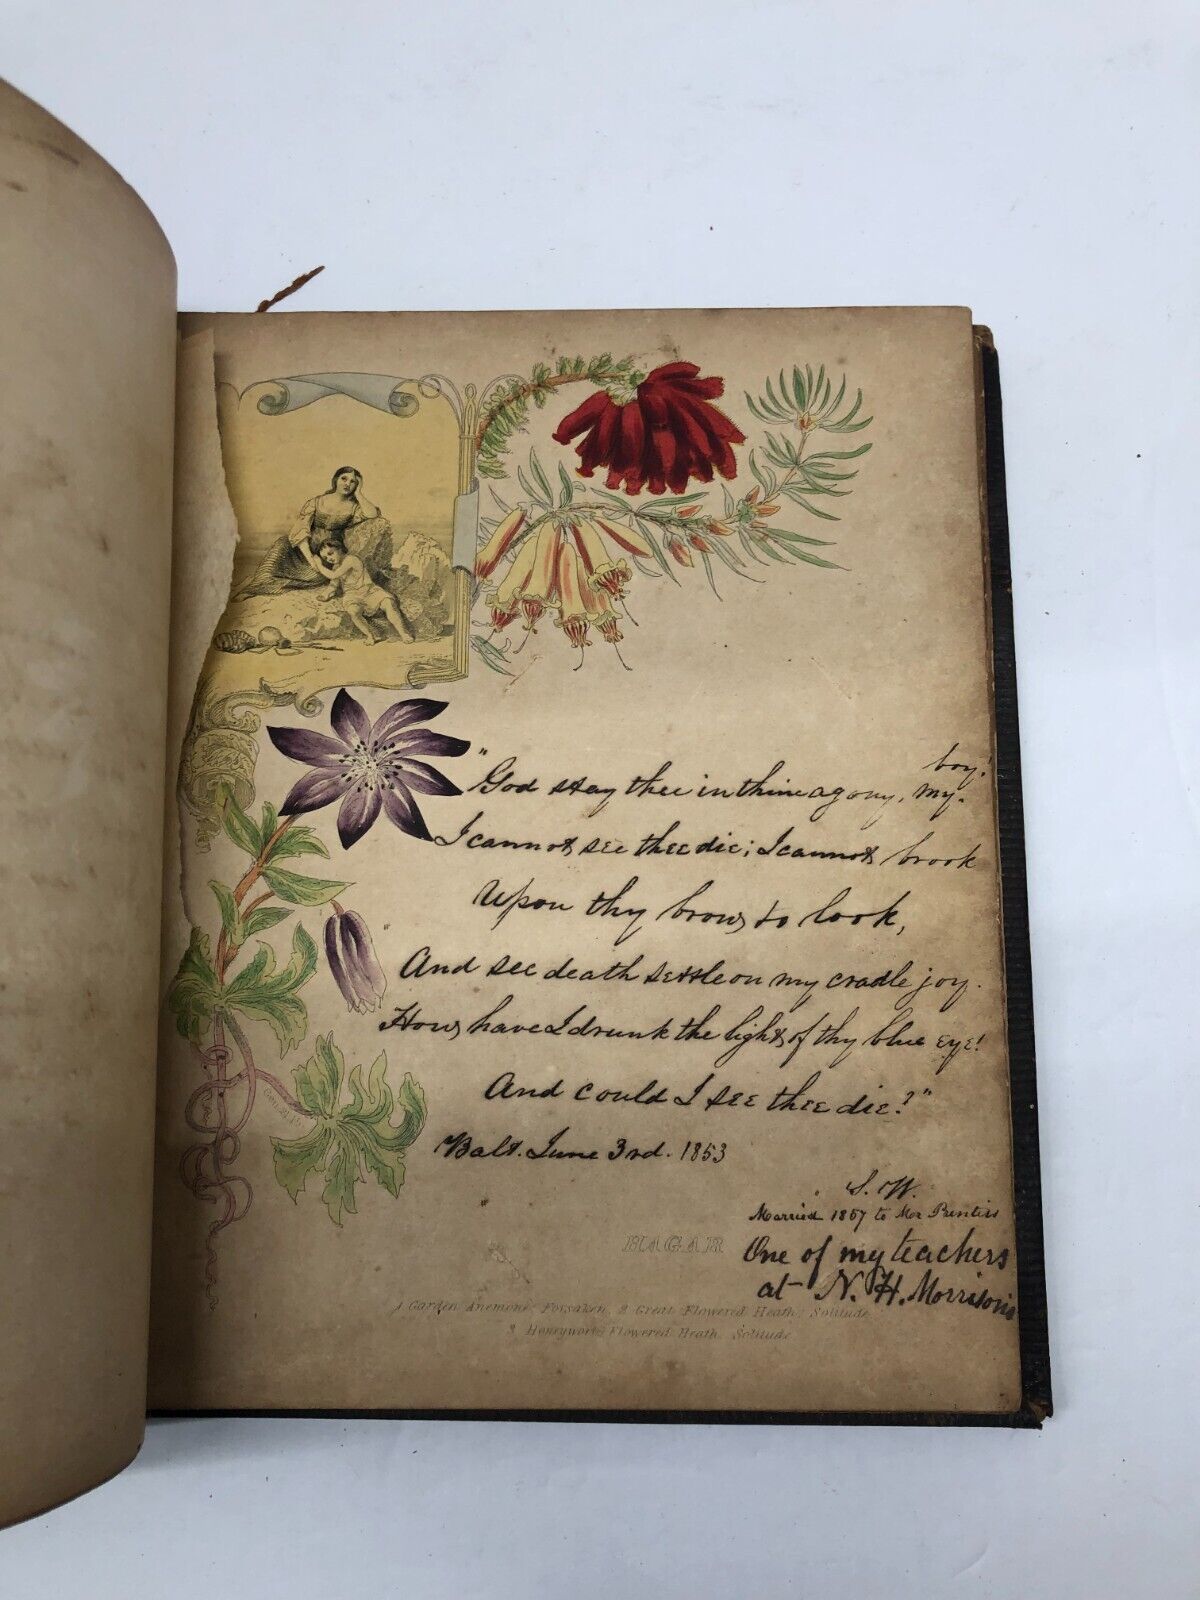 boy!
"God stay thee in thine agony, my.
I cannot see thee die; I cannot brook
Upon thy brow to look,
And see death settle on my cradle joy.
How have I drunk the light of thy blue eye!
And could I see thee die?"
Balt. June 3rd. 1853
S. W.
Married 1857 to Mr
HAGAR
One of my teachers
at N. H. Morrison's
1 Garden Anemone, Forsaken, 2 Great Flowered Heath, Solitude
3 Flowered Heath, Solitude